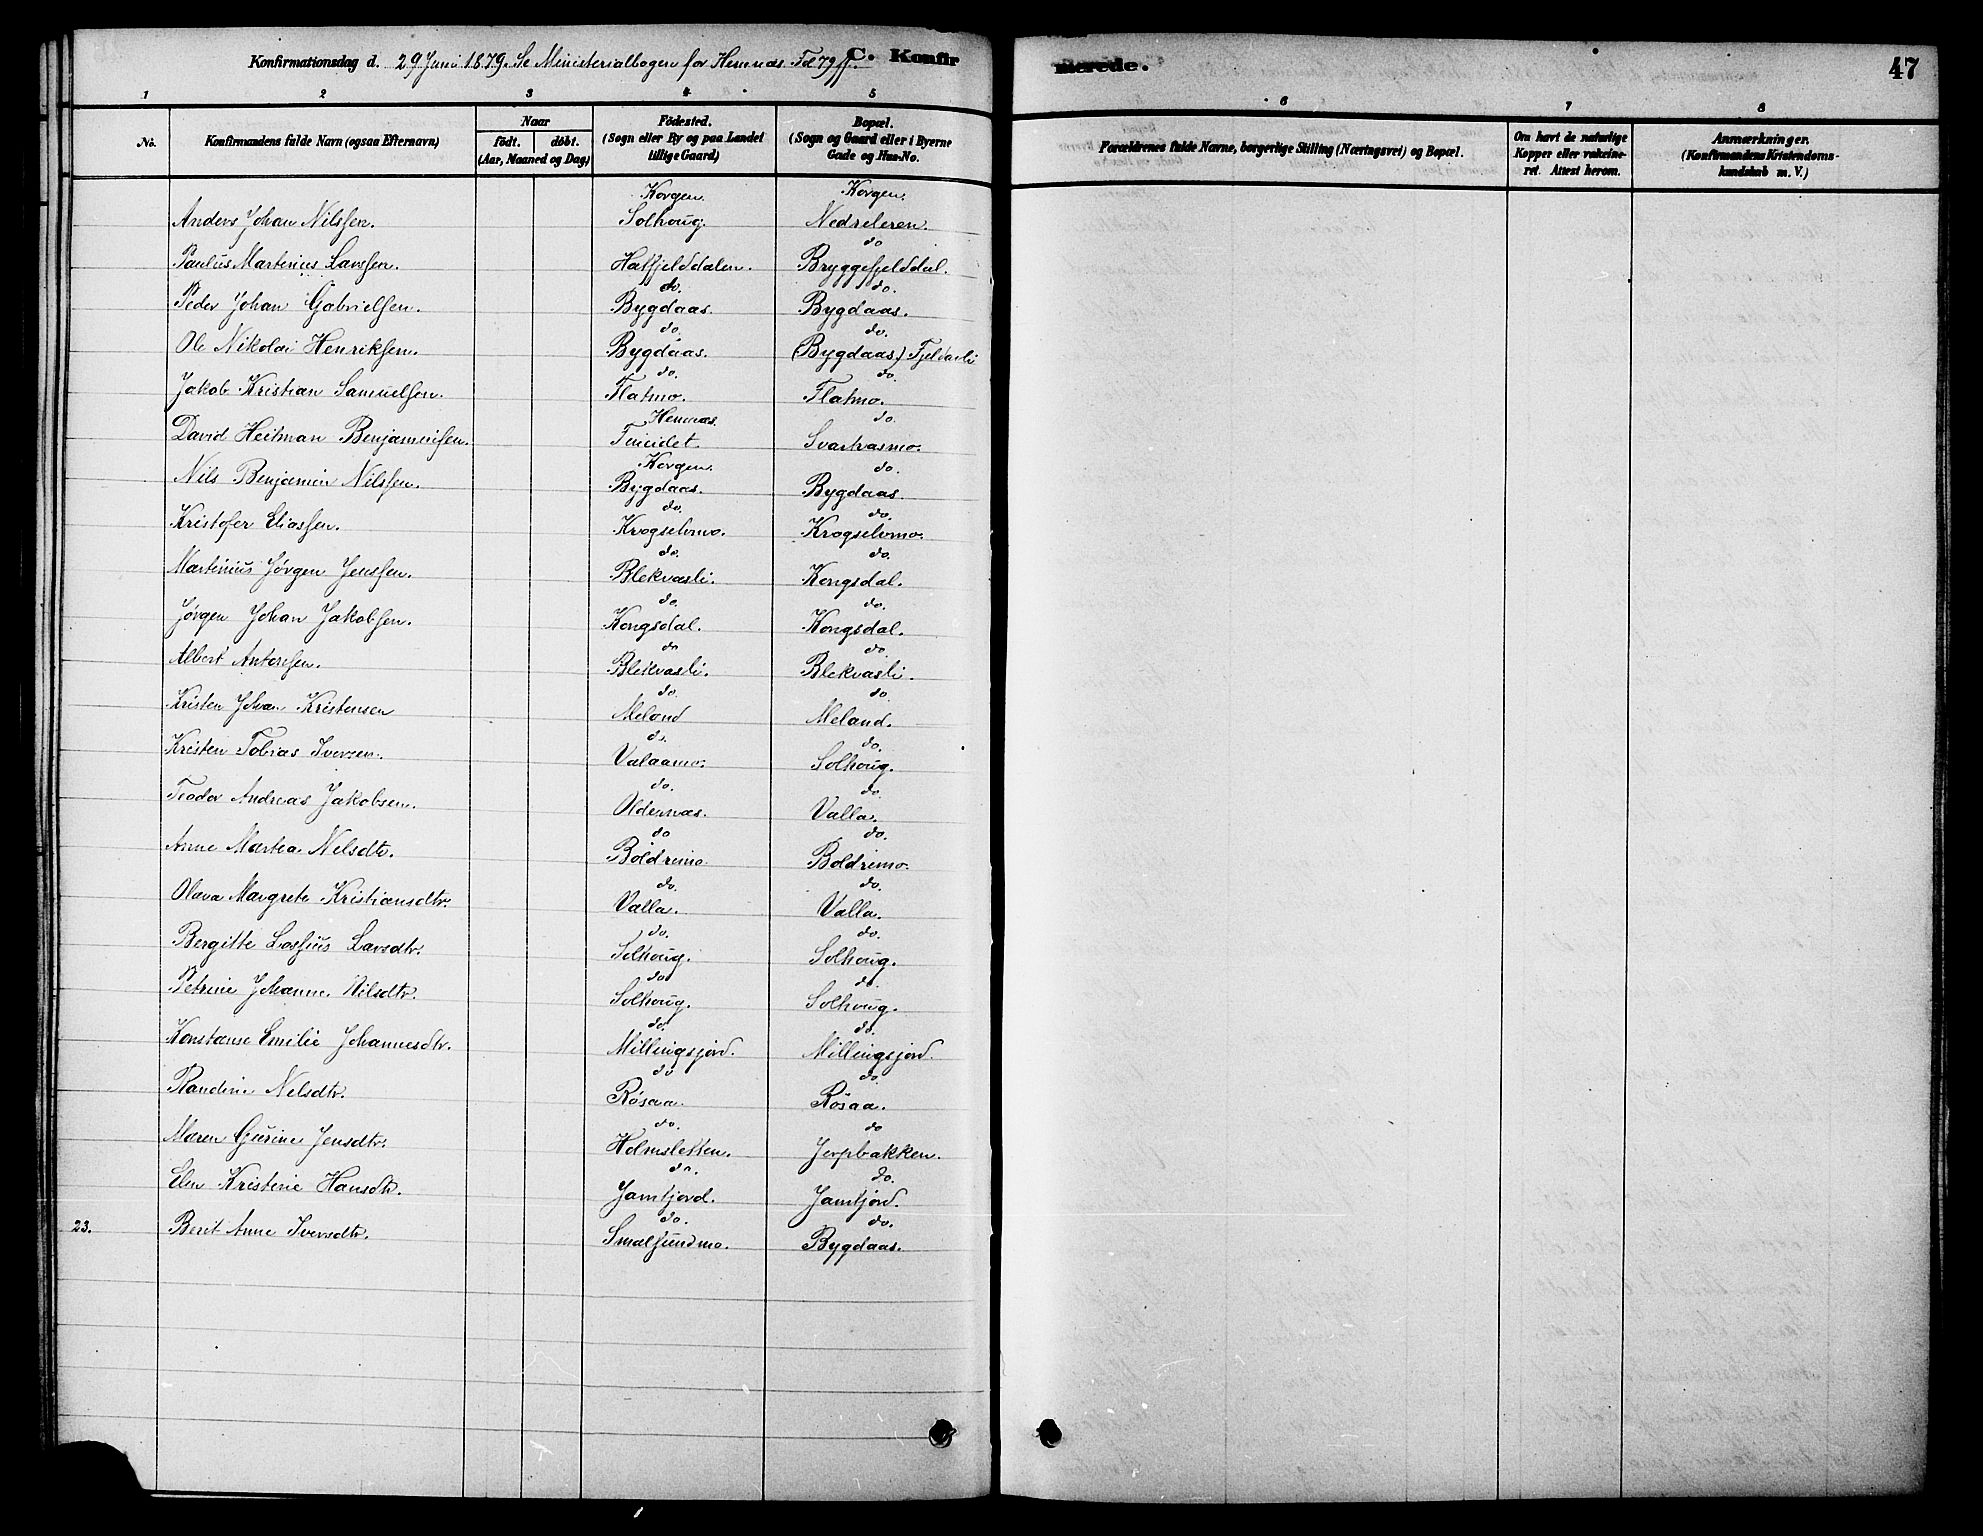 Konfirmationsdag d. 29 Juni 1879. Se Ministerialbogen for Hemnæs Fol 79 ff. C. Konfirmerede. 47
1 2 3 4 5 6 7 8
No. Konfirmandens fulde Navn (ogsaa Efternavn) Naar födt. döbt. (Aar, Maaned og Dag) Födested. (Sogn eller By og paa Landet tillige Gaard) Bopæl. (Sogn og Gaard eller i Byerne Gade og Hus-No. Forældrenes fulde Navne, borgerlige Stilling (Næringsvei) og Bopæl. Om havt de naturlige Kopper eller vakcineret. Attest herom. Anmærkninger. (Konfirmandens Kristendomskundskab m. V.)
Korgen. Korgen.
Anders Johan Nilssen. Solhoug. Nedreleren.
do
Paulus Martinius Larssen. Hatfjelddalen. Bryggefjelddal.
do. do.
Peder Johan Gabrielsen. Bygdaas. Bygdaas.
do. do.
Ole Nikolai Henriksen. Bygdaas. (Bygdaas) Fjeldavli
do. do.
Jakob Kristian Samuelsen. Flatmo. Flatmo.
Hemnæs. do.
David Heitman Benjaminsen. Svartvasmo.
Korgen. do.
Nils Benjamin Nilssen. Bygdaas. Bygdaas.
do. do.
Kristofer Eliassen. Krogselvmo. Krogselvmo.
do. do.
Martinius Jørgen Jenssen. Blekvasli. Kongsdal.
do. do.
Jørgen Johan Jakobsen. Kongsdal. Kongsdal.
do do.
Albert Antonsen. Blekvasli. Blekvasli.
do. do
Kristen Johan Kristensen Meland Meland.
do. do.
Kristen Tobias Iversen. Valaamo. Solhoug.
do. do.
Teodor Andreas Jakobsen. Oldernæs. Valla.
do do.
Anne Martea Nelsdtr. Boldremo. Boldremo.
do. do.
Olava Margrete Kristiansdtr. Valla. Valla.
do. do.
Bergitte Losfius Larsdtr. Solhoug. Solhoug.
do do.
Petrine Johanne Nilsdtr. Solhoug. Solhoug.
do. do.
Konstanse Emilie Johannesdtr. Millingsjord. Millingsjord.
do do.
Randine Nelsdtr. Røsaa. Røsaa.
do. do
Maren Gurine Jensdtr. Holmsletten. Jerpbakken.
do. do.
Elen Kristine Hansdtr. Jamtjord. Jamtjord.
do. do.
23. Berit Anne Iversdtr. Smalsundmo. Bygdaas.